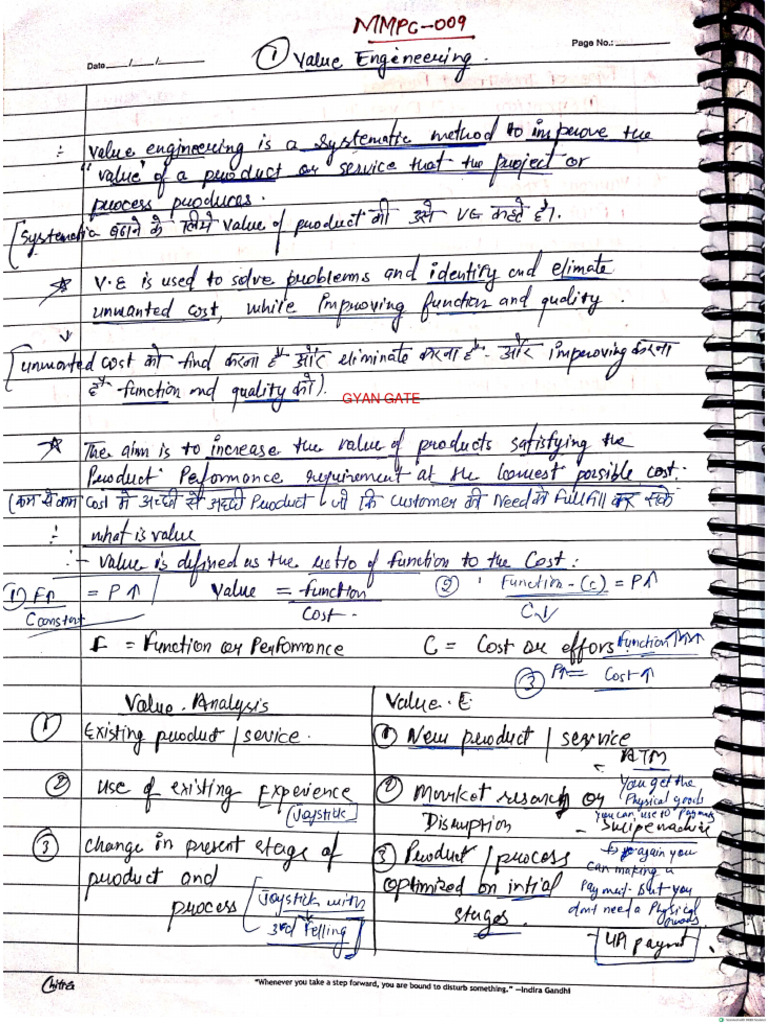 MMPC-009
Date___/___/___ Page No.:
① Value Engineering.
∴ Value engineering is a systematic method to improve the
"value" of a product or service that the project or
process produces.
[Systematic बढाने के लिये value of product की उसे VE कहते है।
☆ V.E is used to solve problems and identify and elimate
unwanted cost, while improving function and quality.
[unwanted cost को find करना है और eliminate करना है - और improving करना
है function and quality को).
GYAN GATE
☆ The aim is to increase the value of products satisfying the
Product Performance requirement at the lowest possible cost:
(कम से कम Cost मे अच्छी से अच्छी Product जो कि customer की Need को Fullfill कर सके
∴ what is value
:- value is defined as the ratio of function to the Cost:
① F↑ = P↑ Value = function ② Function - (c) = P↑
Constant Cost. C↓
F = Function or Performance C = Cost or effors Function ↑↑↑
③ P↑ = Cost ↑
Value Analysis Value. E
① Existing product / sevice. ① New product / service
ATM
② use of existing Experience ② Market research or
You get the
Physical goods
you can use to Paymets
(Joystick) Disruption - Swipe machine
③ change in present stage of ③ Product / process
again you
product and optimized on intial
can making a
Payment But you
process Joystick with stages.
dont need a Physical
goods
3rd Felling
UPI paymt
Chitra "Whenever you take a step forward, you are bound to disturb something." —Indira Gandhi